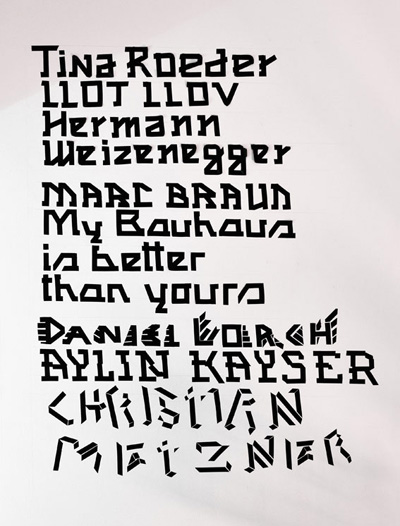 Tina Roeder
LLOT LLOV
Hermann
Weizenegger
MARC BRAUN
My Bauhaus
is better
than yours
DANIEL LORCH
AYLIN KAYSER
CHRISTIAN
METZNER